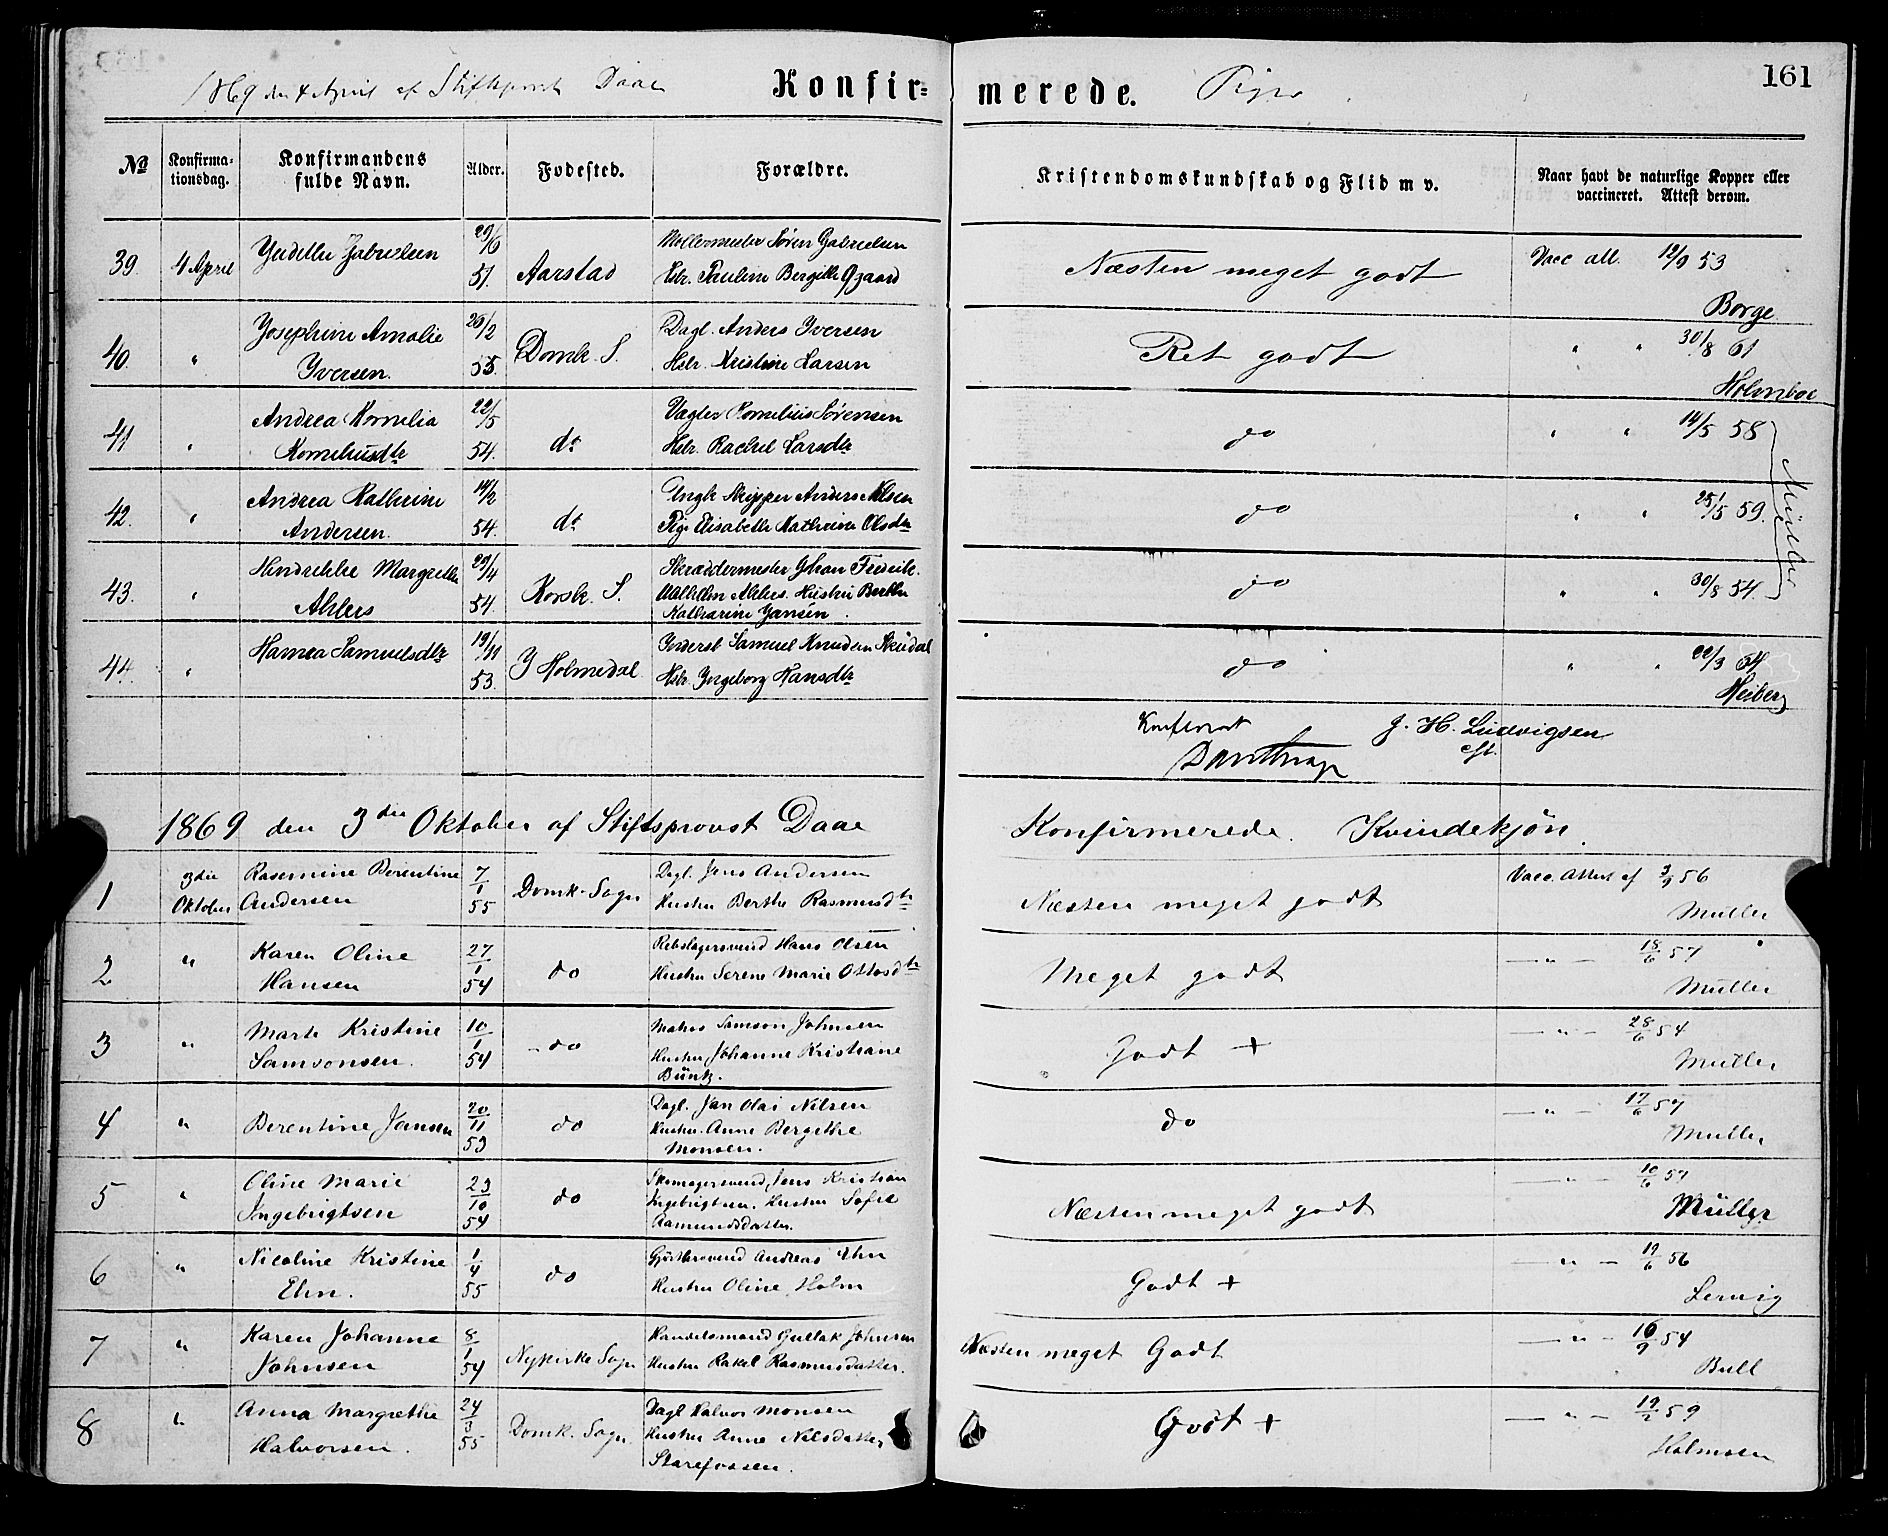 161
1869 den 4 April af Stiftsprovst Daae Konfir- merede. Piger
No Konfirma- Konfirmandens Alder. Fødested. Forældre. Kristendomskundskab og Flid m v. Naar havt de naturlige Kopper eller
tionsdag. fulde Navn. vaccineret. Attest derom.
29/6 Møllermester Søren Gabrielsen
39. 4 April Gabrielsen 51. Aarstad Hstr. Pauline Bergitte Næsten meget godt Vacc att. 12/9 53
Borge
Josephine Amalie 26/2 Dagl. Anders Iversen
40. " Iversen. 55. Domk. S. Hstr. Kristine Larsen Ret godt " " 30/8 61
Holmboe
Andrea Kornelia 22/5 Vægter Kornelius Sørensen
41 " Korneliusdtr 54. do Hstr. Rachel Larsdtr do " " 14/5 58
Andrea Kathrine 14/2 Ungk. Skipper Anders Nilsen
42. " Andersen. 54. do Pige Elisabeth Kathrine Olsdtr do " " 25/5 59.
Hendrikke Margrethe 29/4 Skræddermester Johan Fredrik
43. " Ahlers 54. Korsk. S. Wilhelm Ahlers. Hustru Berthe
Katharine Jansen do " " 30/8 54.
Müller
Hansea Samuelsdtr 19/11 Inderst Samuel Knudsen
44. " 53. Y Holmedal Hstr. Ingeborg Hansdtr do " " 22/3 54
Heiberg
Konfereret J. H. Ludvigsen
1869 den 3die Oktober af Stiftsprovst Daae Konfirmerede. Kvindekjøn.
3die Rasmine Berentine 7/1 Dagl. Jens Andersen Vacc. Attest af 3/9 56
1 Oktober Andersen 55 Domk. Sogn Hustru Berthe Rasmusdtr Næsten meget godt Müller
Karen Oline 27/1 Rebslagersvend Hans Olsen 18/6 57
2 " Hansen 54 do Hustru Serene Marie Ottosdtr Meget godt Müller
Marth Kristine 10/1 Matros Samson Johnsen 28/6 54
3 " Samsonsen. 54 do Hustru Johanne Kristiane
Büntz. Godt + Müller
20/11 Dagl. Jan Olai Nilsen 17/6 57
4 " Berentine Jansen 53 do Hustru Anne Bergithe
Monsen. do Müller
Oline Marie 23/10 Skomagersvend Jens Kristian 10/6 57
5 " Ingebrigtsen 54 do Ingebrigtsen. Hustru Sofie
Aamundsdatter. Næsten meget godt Müller
Nicoline Kristine 1/4 Gjørtlersvend Andreas Ehn 19/6 56
6 " Ehn. 55 do Hustru Oline Holm Godt + Lervig
Karen Johanne 8/1 Handelsmand Gullak Johnsen 16/9 54
7 " Johnsen 54 Nykirke Sogn Hustru Rakel Rasmusdatter. Næsten meget Godt Bull
Anna Margrethe 24/3 Dagl Halvor Monsen 19/2 59
8 " Halvorsen. 55 Domk. Sogn. Hustru Anne Nilsdatter
Starefossen. Godt + Holmsen